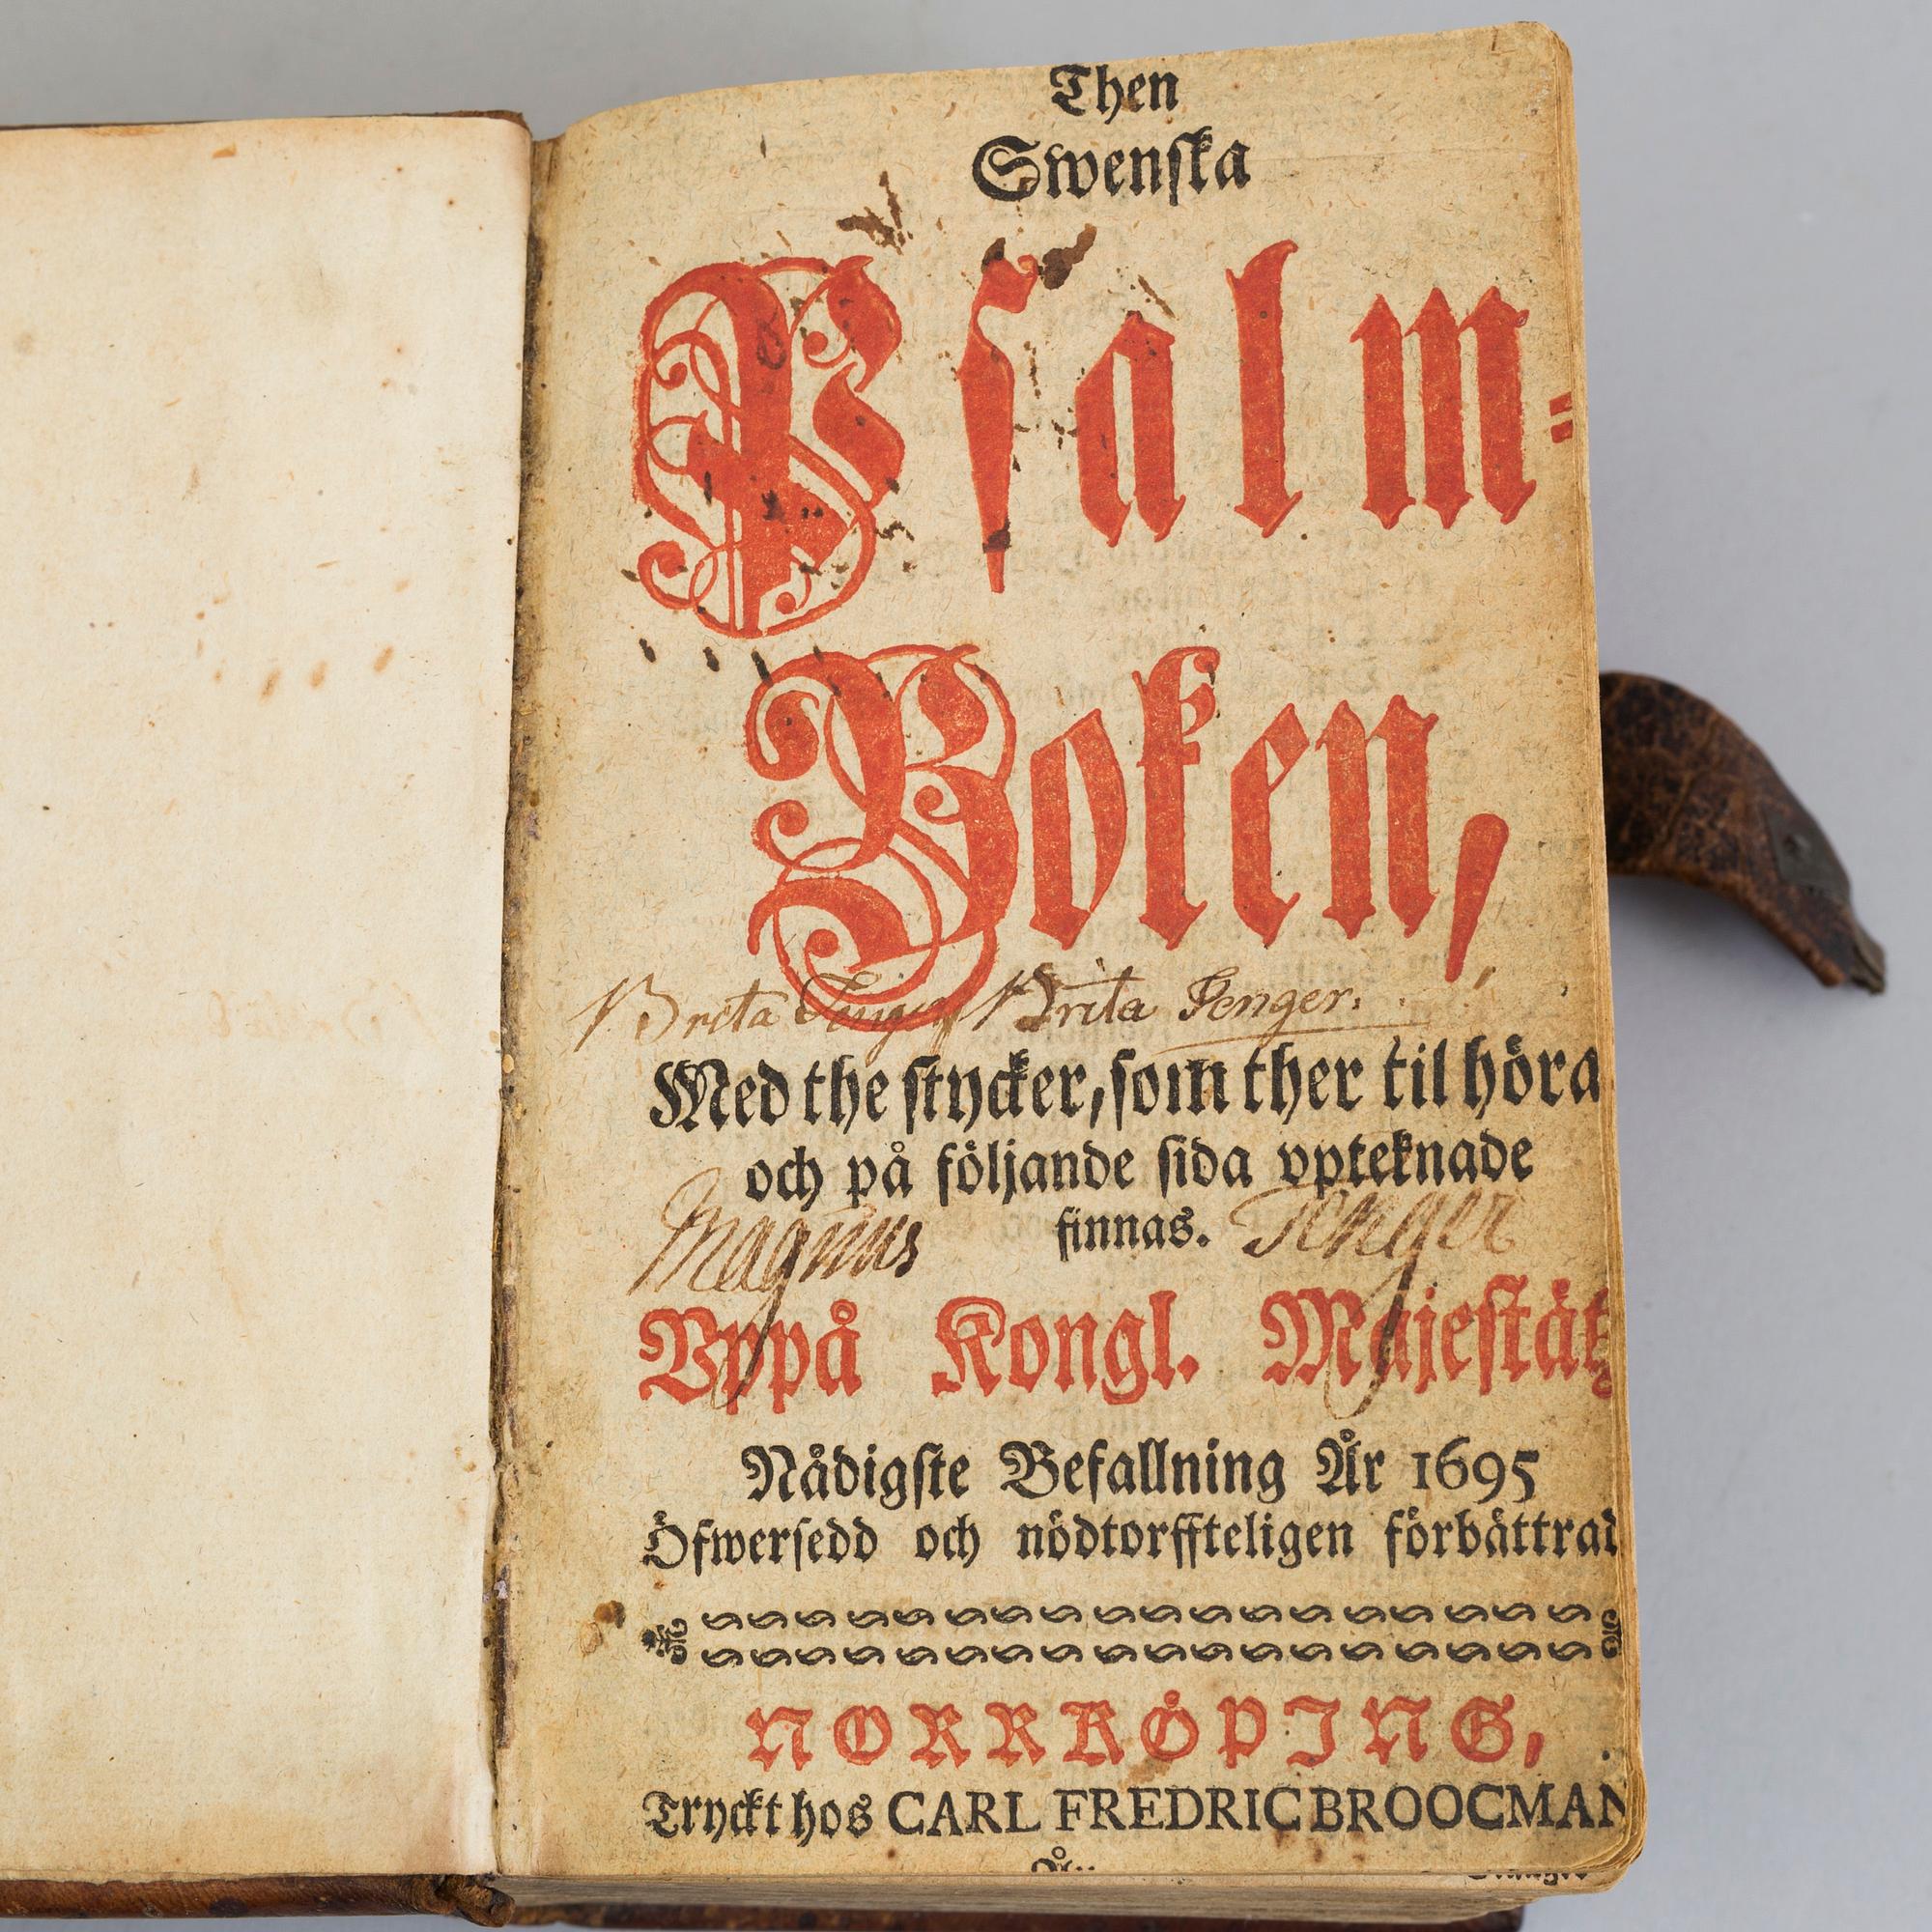 Then
Swenska
Psalm-
Boken,
Brita Brita Fenger.
Med the stycker, som ther til höra
och på följande sida vpteknade
finnas.
Magnus Fenger
Vppå Kongl. Majestätz
Nådigste Befallning År 1695
Öfwersedd och nödtorffteligen förbättrad
NORRKÖPING,
Tryckt hos CARL FREDRIC BROOCMAN